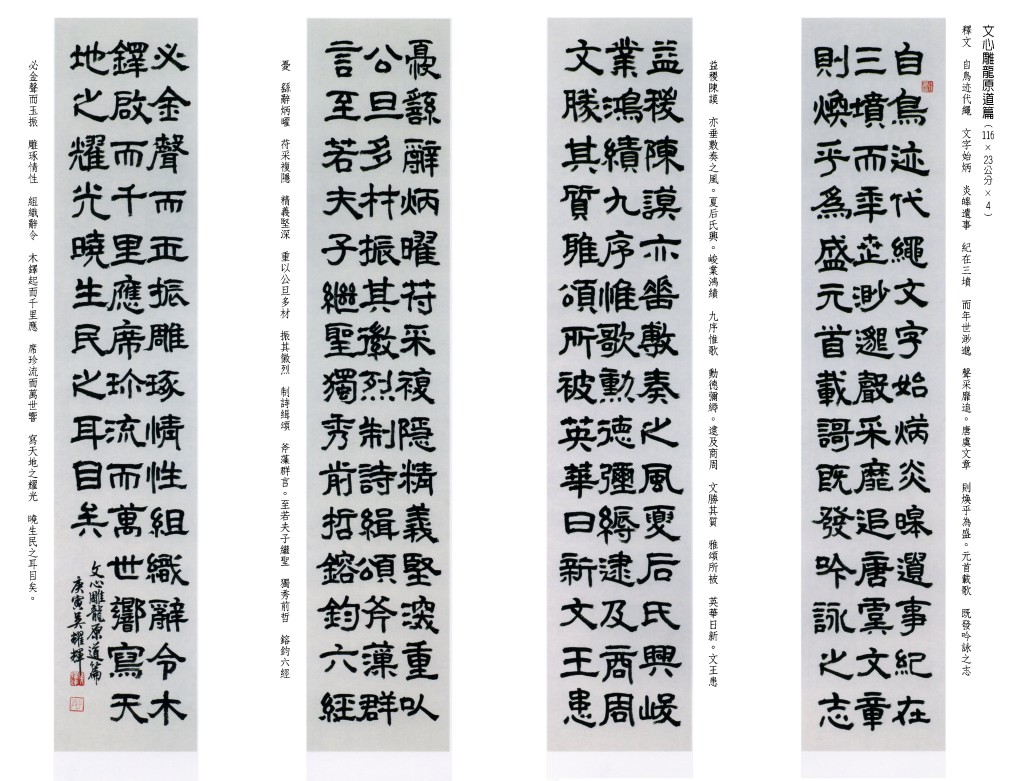 文心雕龍原道篇（116×23公分×4）
釋文　自鳥迹代繩　文字始炳　炎皞遺事　紀在三墳　而年世渺邈　聲采靡追。唐虞文章　則煥乎為盛。元首載歌　既發吟詠之志
自鳥迹代繩文字始炳炎皞遺事紀在
三墳而年世渺邈聲采靡追唐虞文章
則煥乎為盛元首載謌既發吟詠之志
益稷陳謨　亦垂敷奏之風。夏后氏興。峻業鴻績　九序惟歌　勳德彌縟。逮及商周　文勝其質　雅頌所被　英華日新。文王患
益稷陳謨亦垂敷奏之風夏后氏興峻
業鴻績九序惟歌勳德彌縟逮及商周
文勝其質雅頌所被英華日新文王患
憂繇辭炳曜苻采複隱精義堅深重以
公旦多材振其徽烈制詩緝頌斧藻群
言至若夫子繼聖獨秀前哲鎔鈞六經
憂　繇辭炳曜　苻采複隱　精義堅深　重以公旦多材　振其徽烈　制詩緝頌　斧藻群言。至若夫子繼聖　獨秀前哲　鎔鈞六經
必金聲而玉振雕琢情性組織辭令木
鐸啟而千里應席珍流而萬世響寫天
地之耀光曉生民之耳目矣
文心雕龍原道篇
庚寅吳耀輝
必金聲而玉振　雕琢情性　組織辭令　木鐸起而千里應　席珍流而萬世響　寫天地之耀光　曉生民之耳目矣。